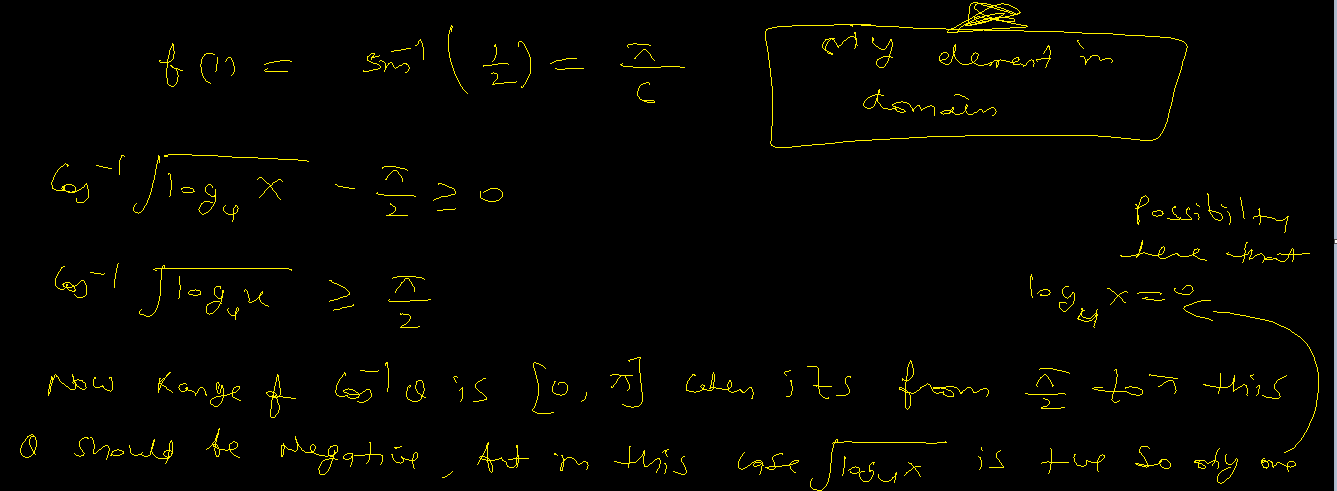 f(1) = sin⁻¹(1/2) = π/6
only element in
domain
Cos⁻¹ √(log₄ x) - π/2 ≥ 0
Cos⁻¹ √(log₄ x) ≥ π/2
Possibilty
here that
log₄ x = 0
Now Range of Cos⁻¹ θ is [0, π] when its from π/2 to π this
θ should be Negative, but in this case √(log₄ x) is +ve so only one